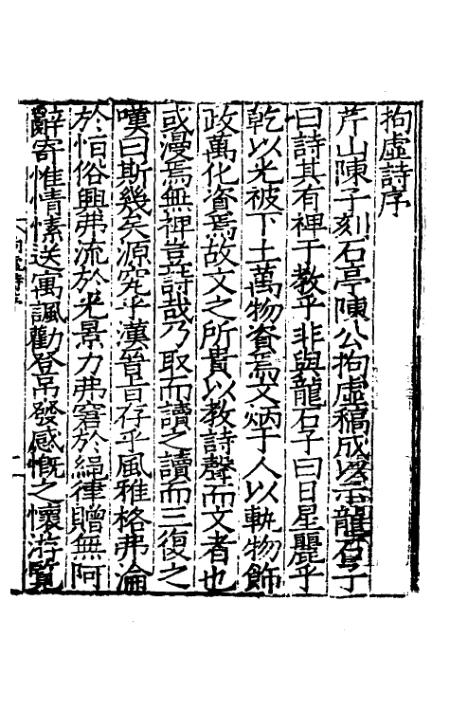 拘虛詩序
芹山陳子刻石亭陳公拘虛稿成以示龍石子
曰詩其有裨于教乎非與龍石子曰日星麗乎
乾以光被下土萬物資焉文炳于人以軌物飾
政萬化資焉故文之所貴以教詩聲而文者也
或漫焉無裨豈詩哉乃取而讀之讀而三復之
嘆曰斯幾矣源究乎漢晉旨存乎風雅格弗淪
於恒俗興弗流於光景力弗窘於緝律贈無阿
辭寄惟情愫送寓諷勸登吊發感慨之懷游覽